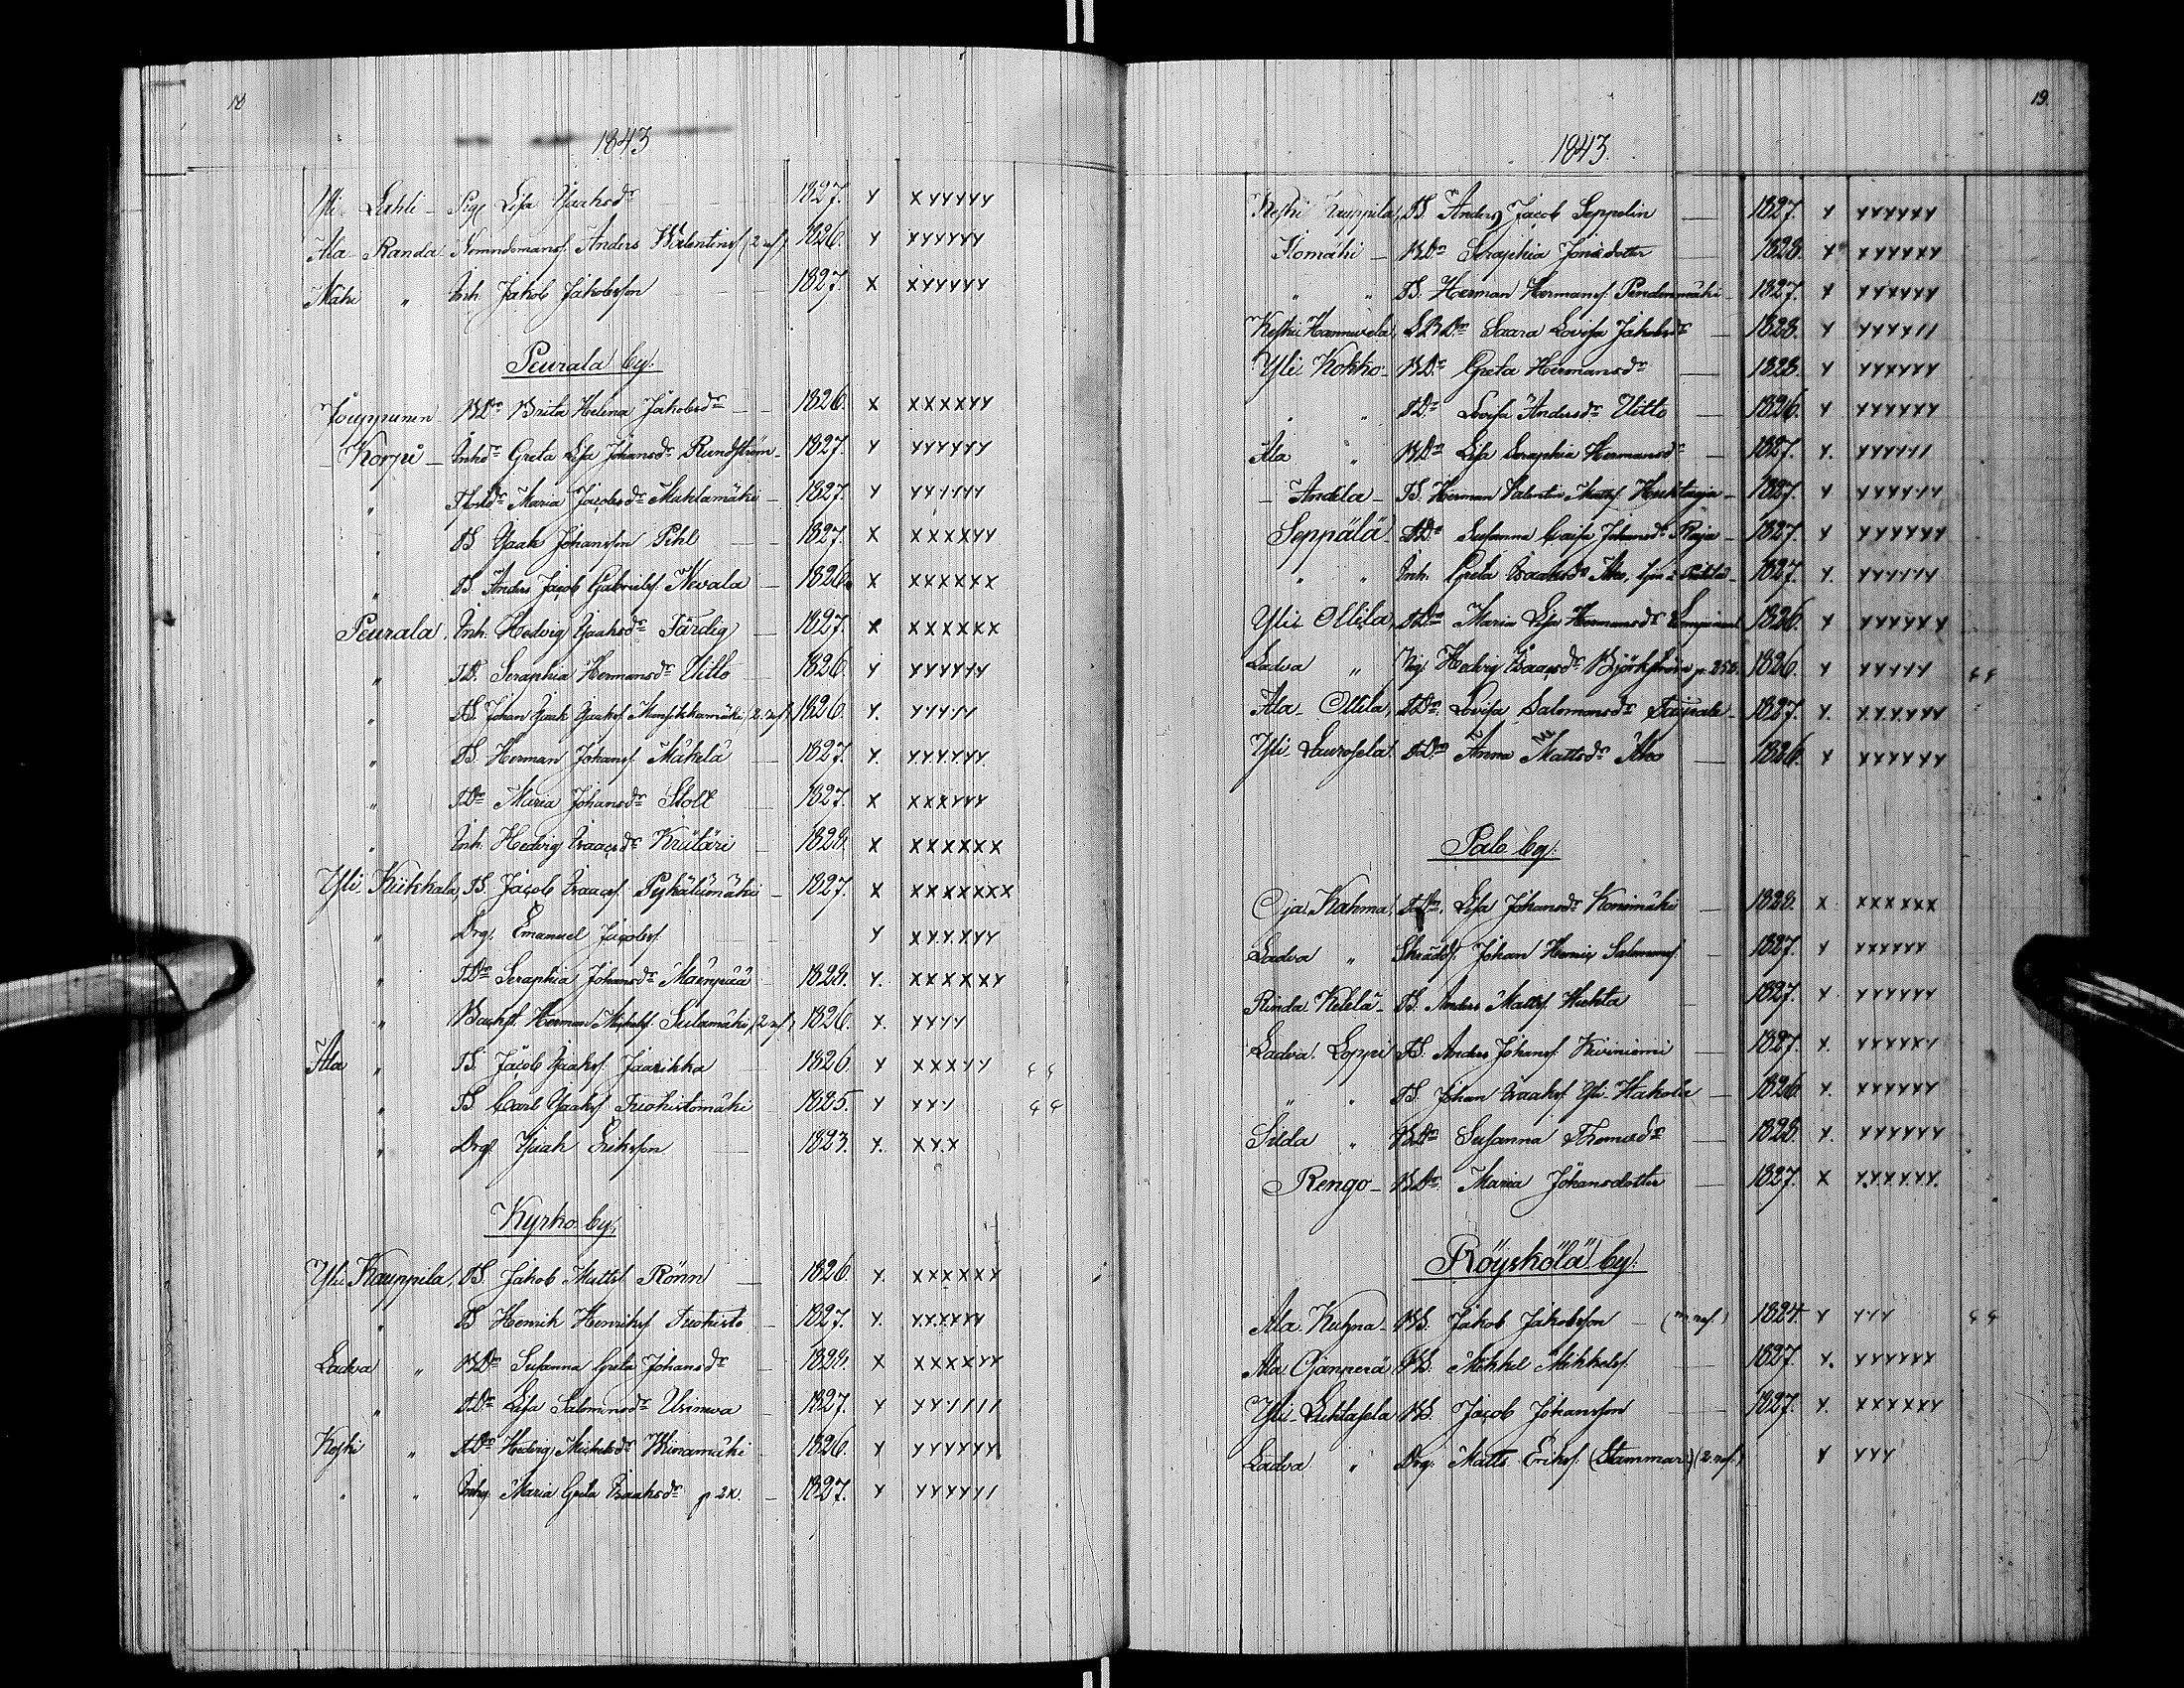 18
1843
Yli Lahti - Pig. Lisa Isaaksdr 1827. x xxxxxx
Ala Randa Nämndemansf. Anders Walentinsf. (2 nf) 1826. x xxxxxx
Mäki " Inh. Jakob Jakobsson 1827. x xxxxxx
Peurala by.
Jouppunen BDr Brita Helena Jakobsdr 1826. x xxxxxx
Korpi Inhdr Greta Lisa Johansdr Rundström 1827. x xxxxxx
" Maria Jacobsdr Muhlamäki 1827. x xxxxxx
" TS. Isaak Johansson Pihl 1827. x xxxxxx
" TS. Anders Jacob Gabrielsf. Nevala 1826. x xxxxxx
Peurala Inh. Hedvig Isaaksdr Färdig 1827. x xxxxxx
" TD. Seraphia Hermansdr Uitto 1826. x xxxxxx
" TS. Johan Isaak Isaaksf. Mansikkamäki (2 nf) 1826. x. xxxxx
" TS. Herman Johansf. Mäkelä 1827. x. xxxxxx
" TDr Maria Johansdr Stolt 1827. x xxxxxx
" Inh. Hedvig Isaacsdr Krütäri 1828. x xxxxxx
Yli Kiikkala, TS. Jacob Isaacsf. Pykälämäki 1827. x xxxxxxx
" Drg. Emanuel Jacobsf. x xxxxxx
" TDr Seraphia Johansdr Mäenpää 1828. x. xxxxxx
" Backst. Herman Michelsf. Sulamäki (2 nf) 1826. x. xxxx
Ala " TS. Jacob Isaaksf. Jaarikka 1826. x xxxxx
" TS Carl Isaaksf. Tuohistomäki 1825. x xxx
" Drg. Isaak Eriksson 1823. x. xxx
Kyrko by.
Yli Kauppila, TS. Jakob Mattsf. Rönn 1826. x. xxxxxx
" TS Henrik Henriksf. Tuohisto 1827. x. xxxxxx
Ladva " BDr Susanna Greta Johansdr 1828. x xxxxxx
" TDr Lisa Salomonsdr Usineva 1827. x xxxxxx
Keski " TDr Hedvig Michelsdr Wiinamäki 1826. x xxxxxx
" " Inhg. Maria Greta Isaaksdr 1827. x xxxxxx
19.
1843.
Keski Kauppila, TS. Anders Jacob Seppelin 1827. x xxxxxx
Ilomäki BDr Seraphia Jonasdotter 1828. x xxxxxx
" " TS. Herman Hermansf. Pendinmäki 1827. x xxxxxx
Keski Hannuxela, SBDr Saara Lovisa Jakobsdr 1828. x xxxxxx
Yli Kokko BDr Greta Hermansdr 1828. x xxxxxx
" " TDr Lovisa Andersdr Uitto 1826. x xxxxxx
Ala " BDr Lisa Seraphia Hermansdr 1827. x. xxxxxx
Andila TS. Herman Valentin Mattsf. 1827. x xxxxxx
Seppälä TDr Susanna Caisa Johansdr Raja 1827. x xxxxxx
" " Inh. Greta Isaaksdr 1827. x. xxxxxx
Yli Ollila, TDr Maria Lisa Hermansdr 1826. x xxxxxx
Ladva " Pig. Hedvig Isaacsdr Björkström 1826. x xxxxx
Ala Ollila, TDr Lovisa Salomonsdr 1827. x. xxxxxx
Yli Laurosela TDr Anna Mattsdr Aho 1826. x xxxxxx
Palo by.
Oja Kahma, TDr. Lisa Johansdr Konimäki 1828. x xxxxxx
Ladva " Skrädd. Johan Henric Salomonsf. 1827. x xxxxxx
Rinda Kelelä TS. Anders Mattsf. Huhta 1827. x xxxxxx
Ladva Loppi TS. Anders Johansf. Kiviniemi 1827. x. xxxxxx
" " TS. Johan Isaaksf. Yli-Hakola 1826. x. xxxxxx
Silda " BDr Susanna Thomasdr 1828. x. xxxxxx
Rengo BDr Maria Johansdotter 1827. x xxxxxx.
Röyskölä by.
Ala Kuhna BS. Jakob Jakobsson 1824. x xxx
Ala Ojanperä BS. Mikkel Mikkelsf. 1827. x. xxxxxx
Yli Luhtasela BS. Jacob Johansson 1827. x. xxxxxx
Ladva " Drg. Matts Eriksf. (Stammar) (2 nf.) x xxx